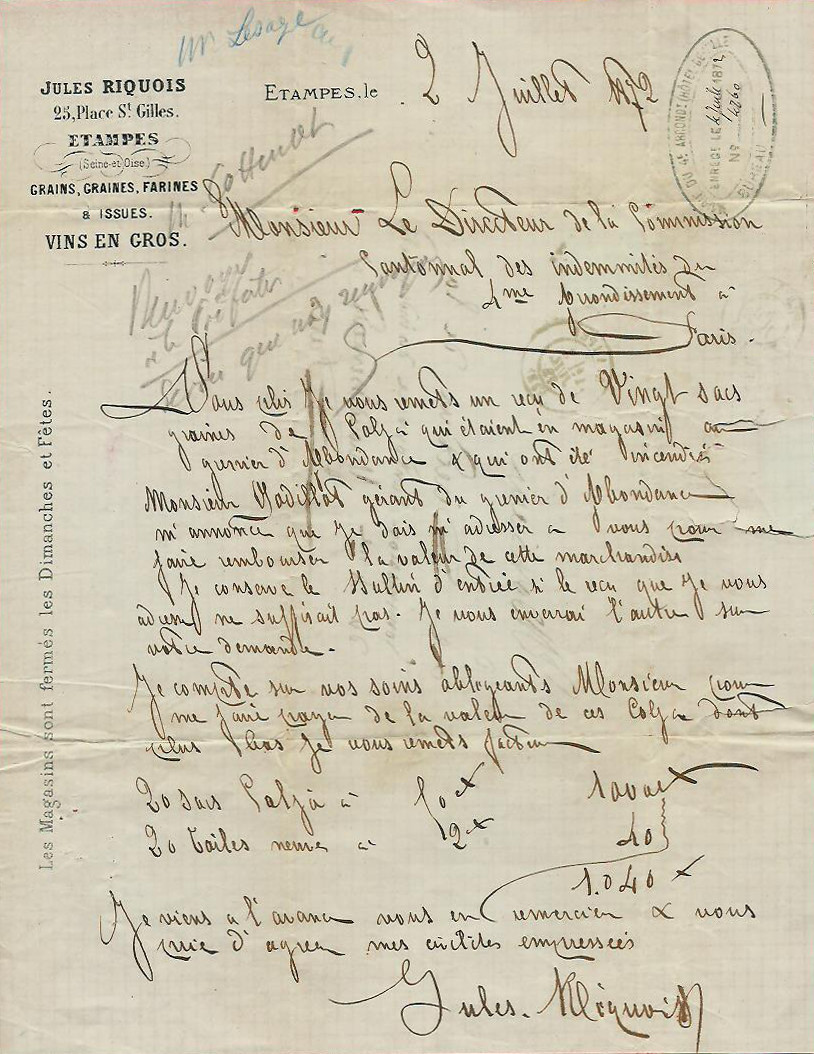 Mr Lesage
JULES RIQUOIS
25, Place St Gilles.
ETAMPES
(Seine-et-Oise)
GRAINS, GRAINES, FARINES
& ISSUES.
VINS EN GROS.
ETAMPES, le 2 Juillet 1872
Monsieur Le Directeur de la Commission
Cantonnal des indemnités du
4me Arrondissement à
Paris.
Renvoyer
à la Préfecture
Sous plis Je vous remets un reçu de Vingt sacs
graines de Colza qui étaient en magasin au
grenier d'Abondance & qui ont été incendiés
Monsieur Vadillat gérant du grenier d'Abondance
m'annonce que Je dois m'adresser a vous pour me
faire rembourser la valeur de cette marchandise
Je conserve le Bulletin d'entrée si le reçu que Je vous
adresse ne suffisait pas. Je vous enverrai l'autre sur
votre demande.
Je compte sur vos soins obligeants Monsieur pour
me faire payer de la valeur de ces Colza dont
plus bas Je vous remets facture
20 sacs Colza à 50 1000
20 Toiles neuves à 2 40
1.040
Je viens a l'avance vous en remercier & vous
prie d'agreer mes civilités empressées
Jules Riquois
Les Magasins sont fermés les Dimanches et Fêtes.
BUREAU